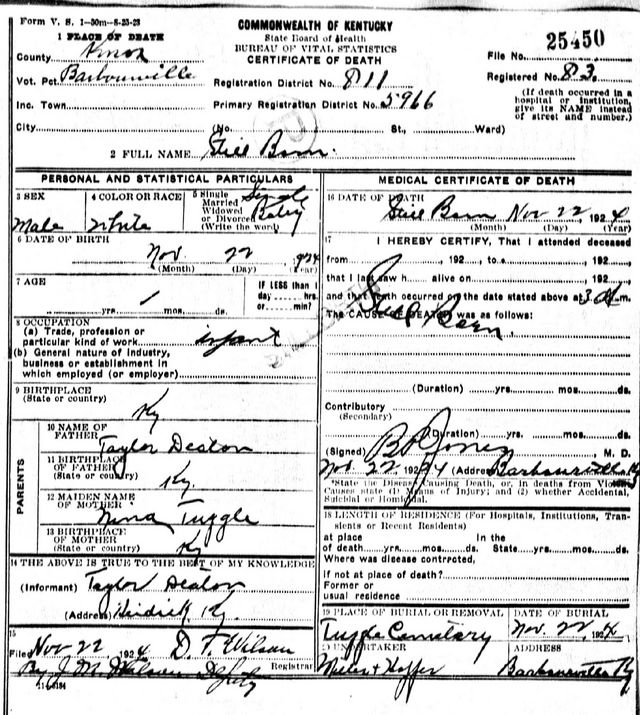 Form V. S. 1-50m-8-23-23
COMMONWEALTH OF KENTUCKY
State Board of Health
BUREAU OF VITAL STATISTICS
CERTIFICATE OF DEATH
1 PLACE OF DEATH
County Knox
Vot. Pct. Barbourville
Inc. Town
City
Registration District No. 811
Primary Registration District No. 5966
(No. St., Ward)
File No. 25450
Registered No. 83
(If death occurred in a
hospital or institution,
give its NAME instead
of street and number.)
2 FULL NAME Still Born.
PERSONAL AND STATISTICAL PARTICULARS
3 SEX
Male
4 COLOR OR RACE
White
5 Single
Married
Widowed
or Divorced
(Write the word)
Single
Baby
6 DATE OF BIRTH
Nov. 22 1924
(Month) (Day) (Year)
7 AGE
yrs. mos. ds.
IF LESS than 1
day hrs.
or min?
8 OCCUPATION
(a) Trade, profession or
particular kind of work infant
(b) General nature of industry,
business or establishment in
which employed (or employer)
9 BIRTHPLACE
(State or country)
Ky
PARENTS
10 NAME OF
FATHER
Taylor Deaton
11 BIRTHPLACE
OF FATHER
(State or country)
Ky.
12 MAIDEN NAME
OF MOTHER
Nina Tuggle
13 BIRTHPLACE
OF MOTHER
(State or country)
Ky
14 THE ABOVE IS TRUE TO THE BEST OF MY KNOWLEDGE
(Informant) Taylor Deaton
(Address) Ky.
15
Filed Nov 22, 1924 D. F. Wilson
Registrar
By J. M. Wilson Deputy
11-3184
MEDICAL CERTIFICATE OF DEATH
16 DATE OF DEATH
Still Born Nov 22, 1924
(Month) (Day) (Year)
17 I HEREBY CERTIFY, That I attended deceased
from , 192 , to , 192 ,
that I last saw h alive on , 192 ,
and that death occurred on the date stated above at 3 a m.
The CAUSE OF DEATH was as follows:
Still Born
(Duration) yrs. mos. ds.
Contributory
(Secondary)
(Duration) yrs. mos. ds.
(Signed) B P Jones, M. D.
Nov. 22 1924 (Address) Barbourville Ky
*State the Disease Causing Death, or, in deaths from Violent
Causes state (1) Means of Injury; and (2) whether Accidental,
Suicidal or Homicidal.
18 LENGTH OF RESIDENCE (For Hospitals, Institutions, Tran-
sients or Recent Residents)
at place In the
of death yrs. mos. ds. State yrs. mos. ds.
Where was disease contracted,
if not at place of death?
Former or
usual residence
19 PLACE OF BURIAL OR REMOVAL
Tuggle Cemetary
DATE OF BURIAL
Nov. 22, 1924
20 UNDERTAKER
ADDRESS
Barbourville Ky